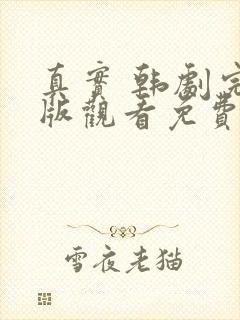 真實 韓劇完
版觀看免費
雪夜老猫